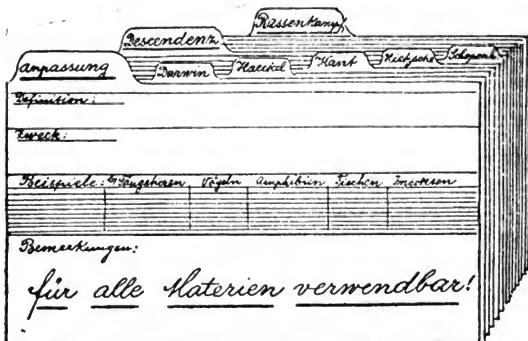 Rassenkampf
Descendenz
Anpassung
Darwin Haeckel Kant Nietzsche Schopenh
Definition:
Zweck:
Beispiele: by Säugetieren Vögeln Amphibien Fischen Insekten
Bemerkungen:
für alle Materien verwendbar!